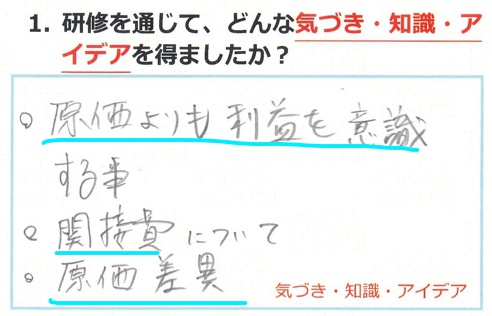 1. 研修を通じて、どんな気づき・知識・ア
イデアを得ましたか？
○ 原価よりも利益を意識
する事
○ 関接費について
○ 原価差異
気づき・知識・アイデア